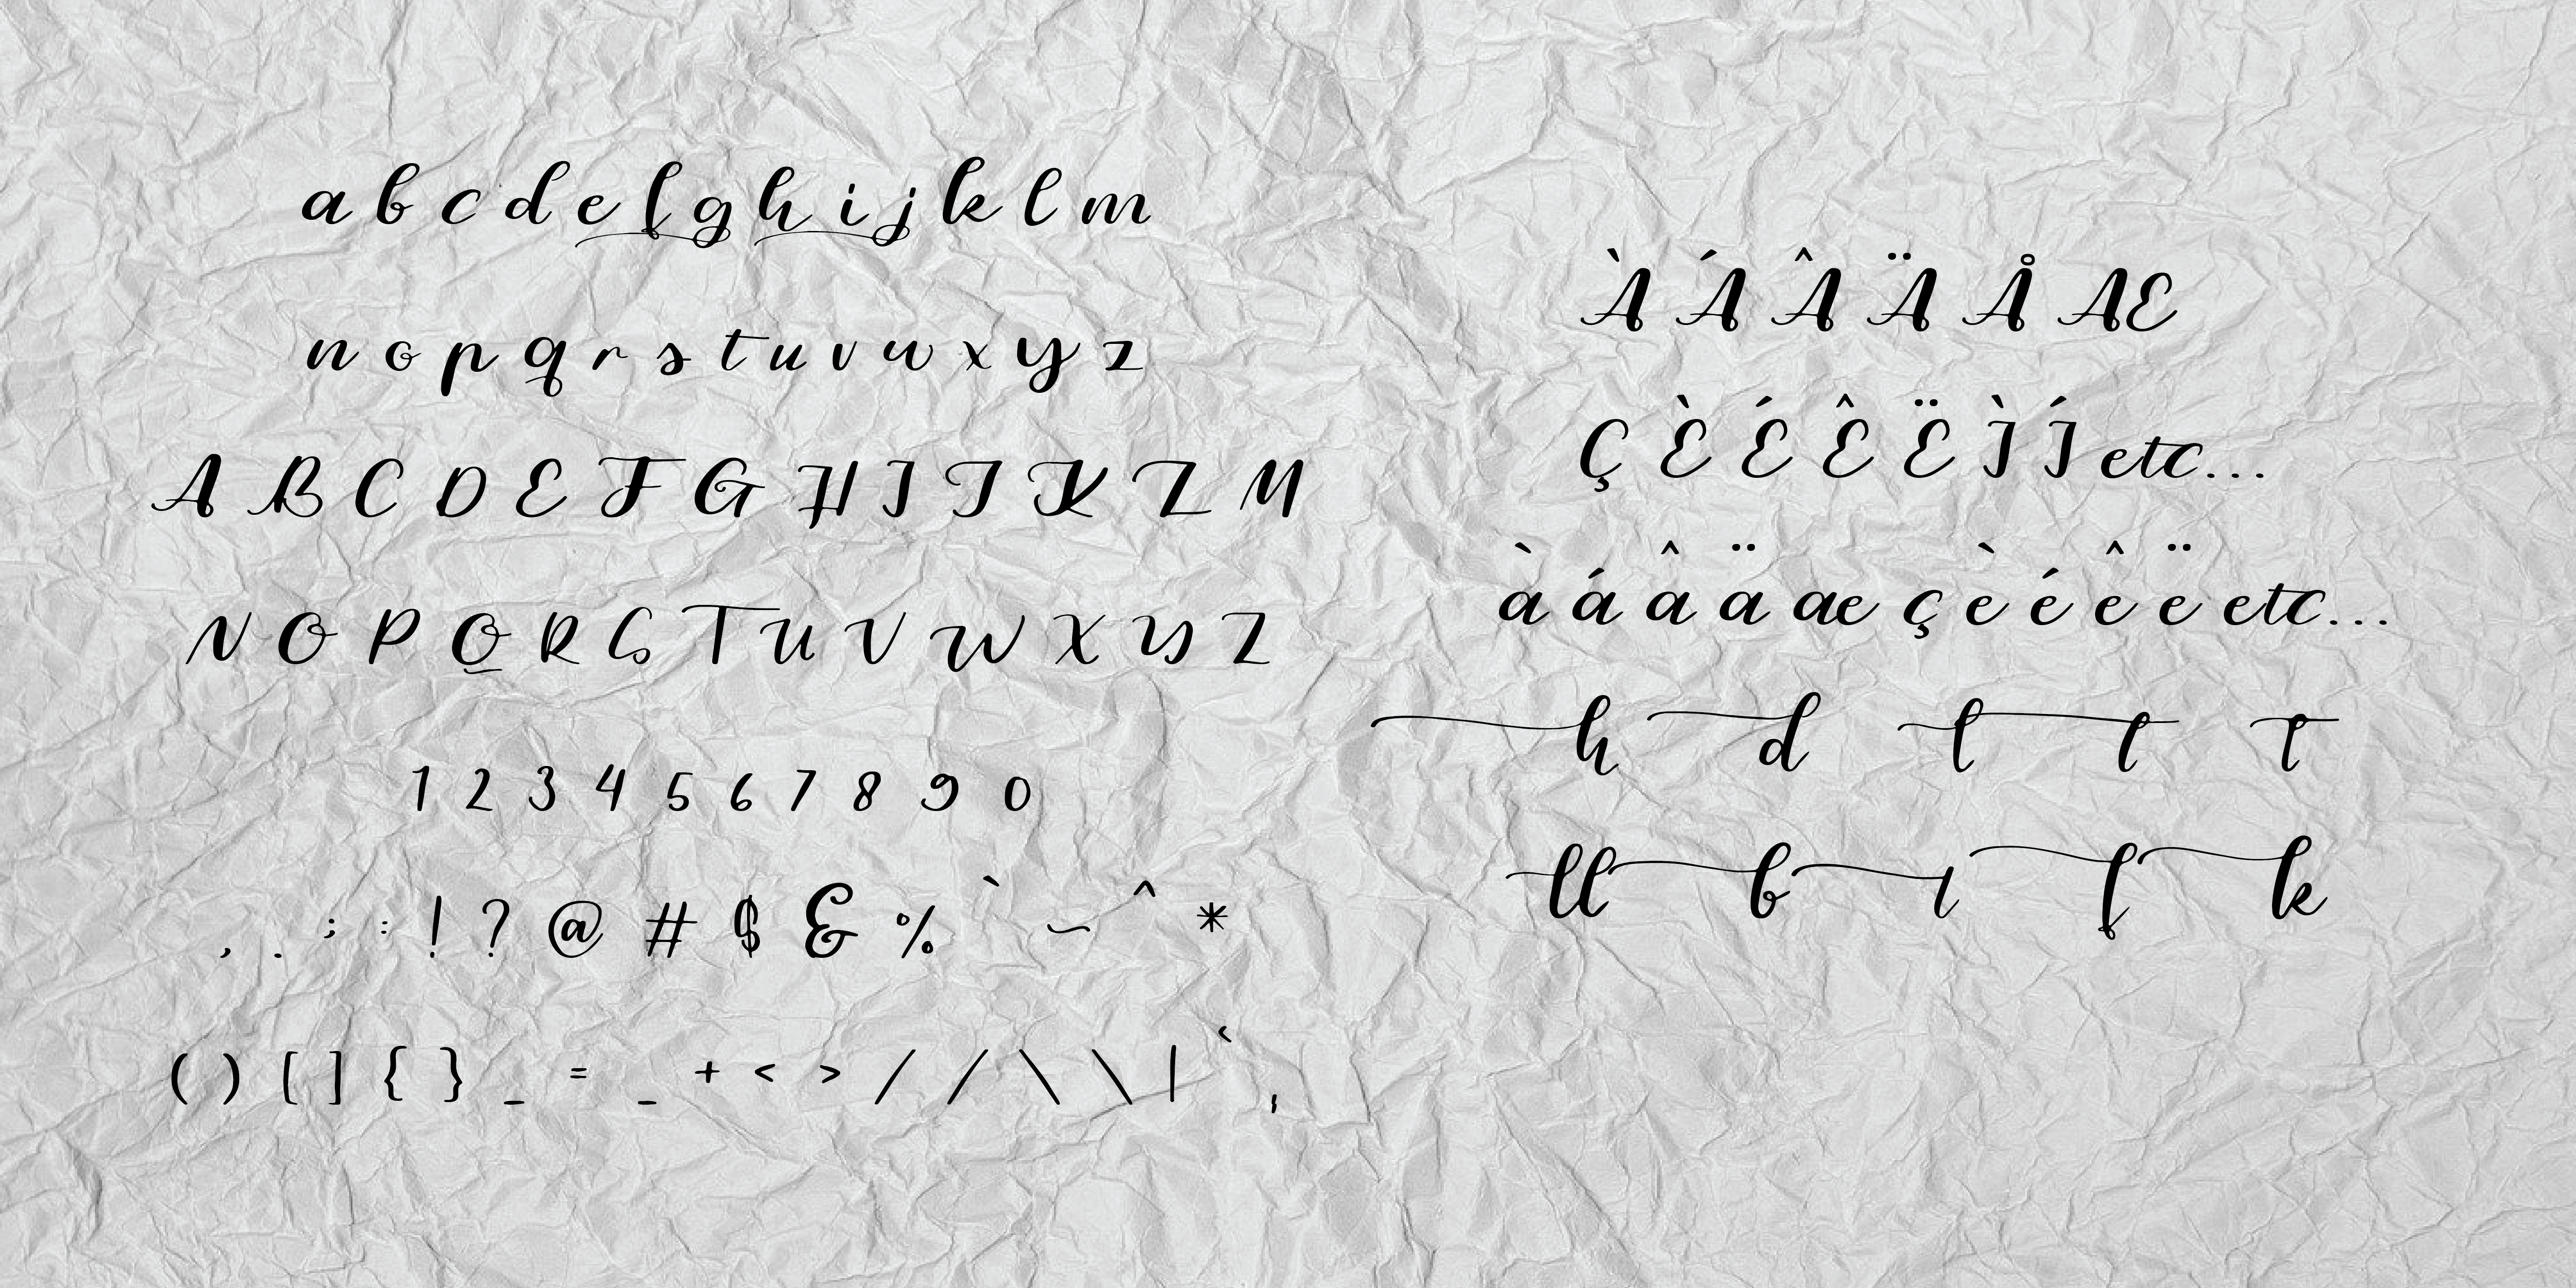 a b c d e f g h i j k l m
n o p q r s t u v w x y z
A B C D E F G H I J K L M
N O P Q R S T U V W X Y Z
1 2 3 4 5 6 7 8 9 0
, . ; : ! ? @ # $ & % ` ~ ^ *
( ) [ ] { } _ = _ + < > / / \ \ | ‘ ,
À Á Â Ä Å Æ
Ç È É Ê Ë Ì Í etc...
à á â ä æ ç è é ê ë etc...
h d t t t
ll b i f k